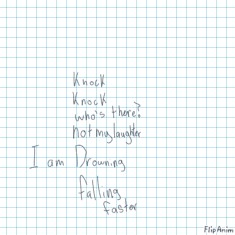 Knock
Knock
who's there?
not my laughter
I am Drowning
falling
faster
FlipAnim